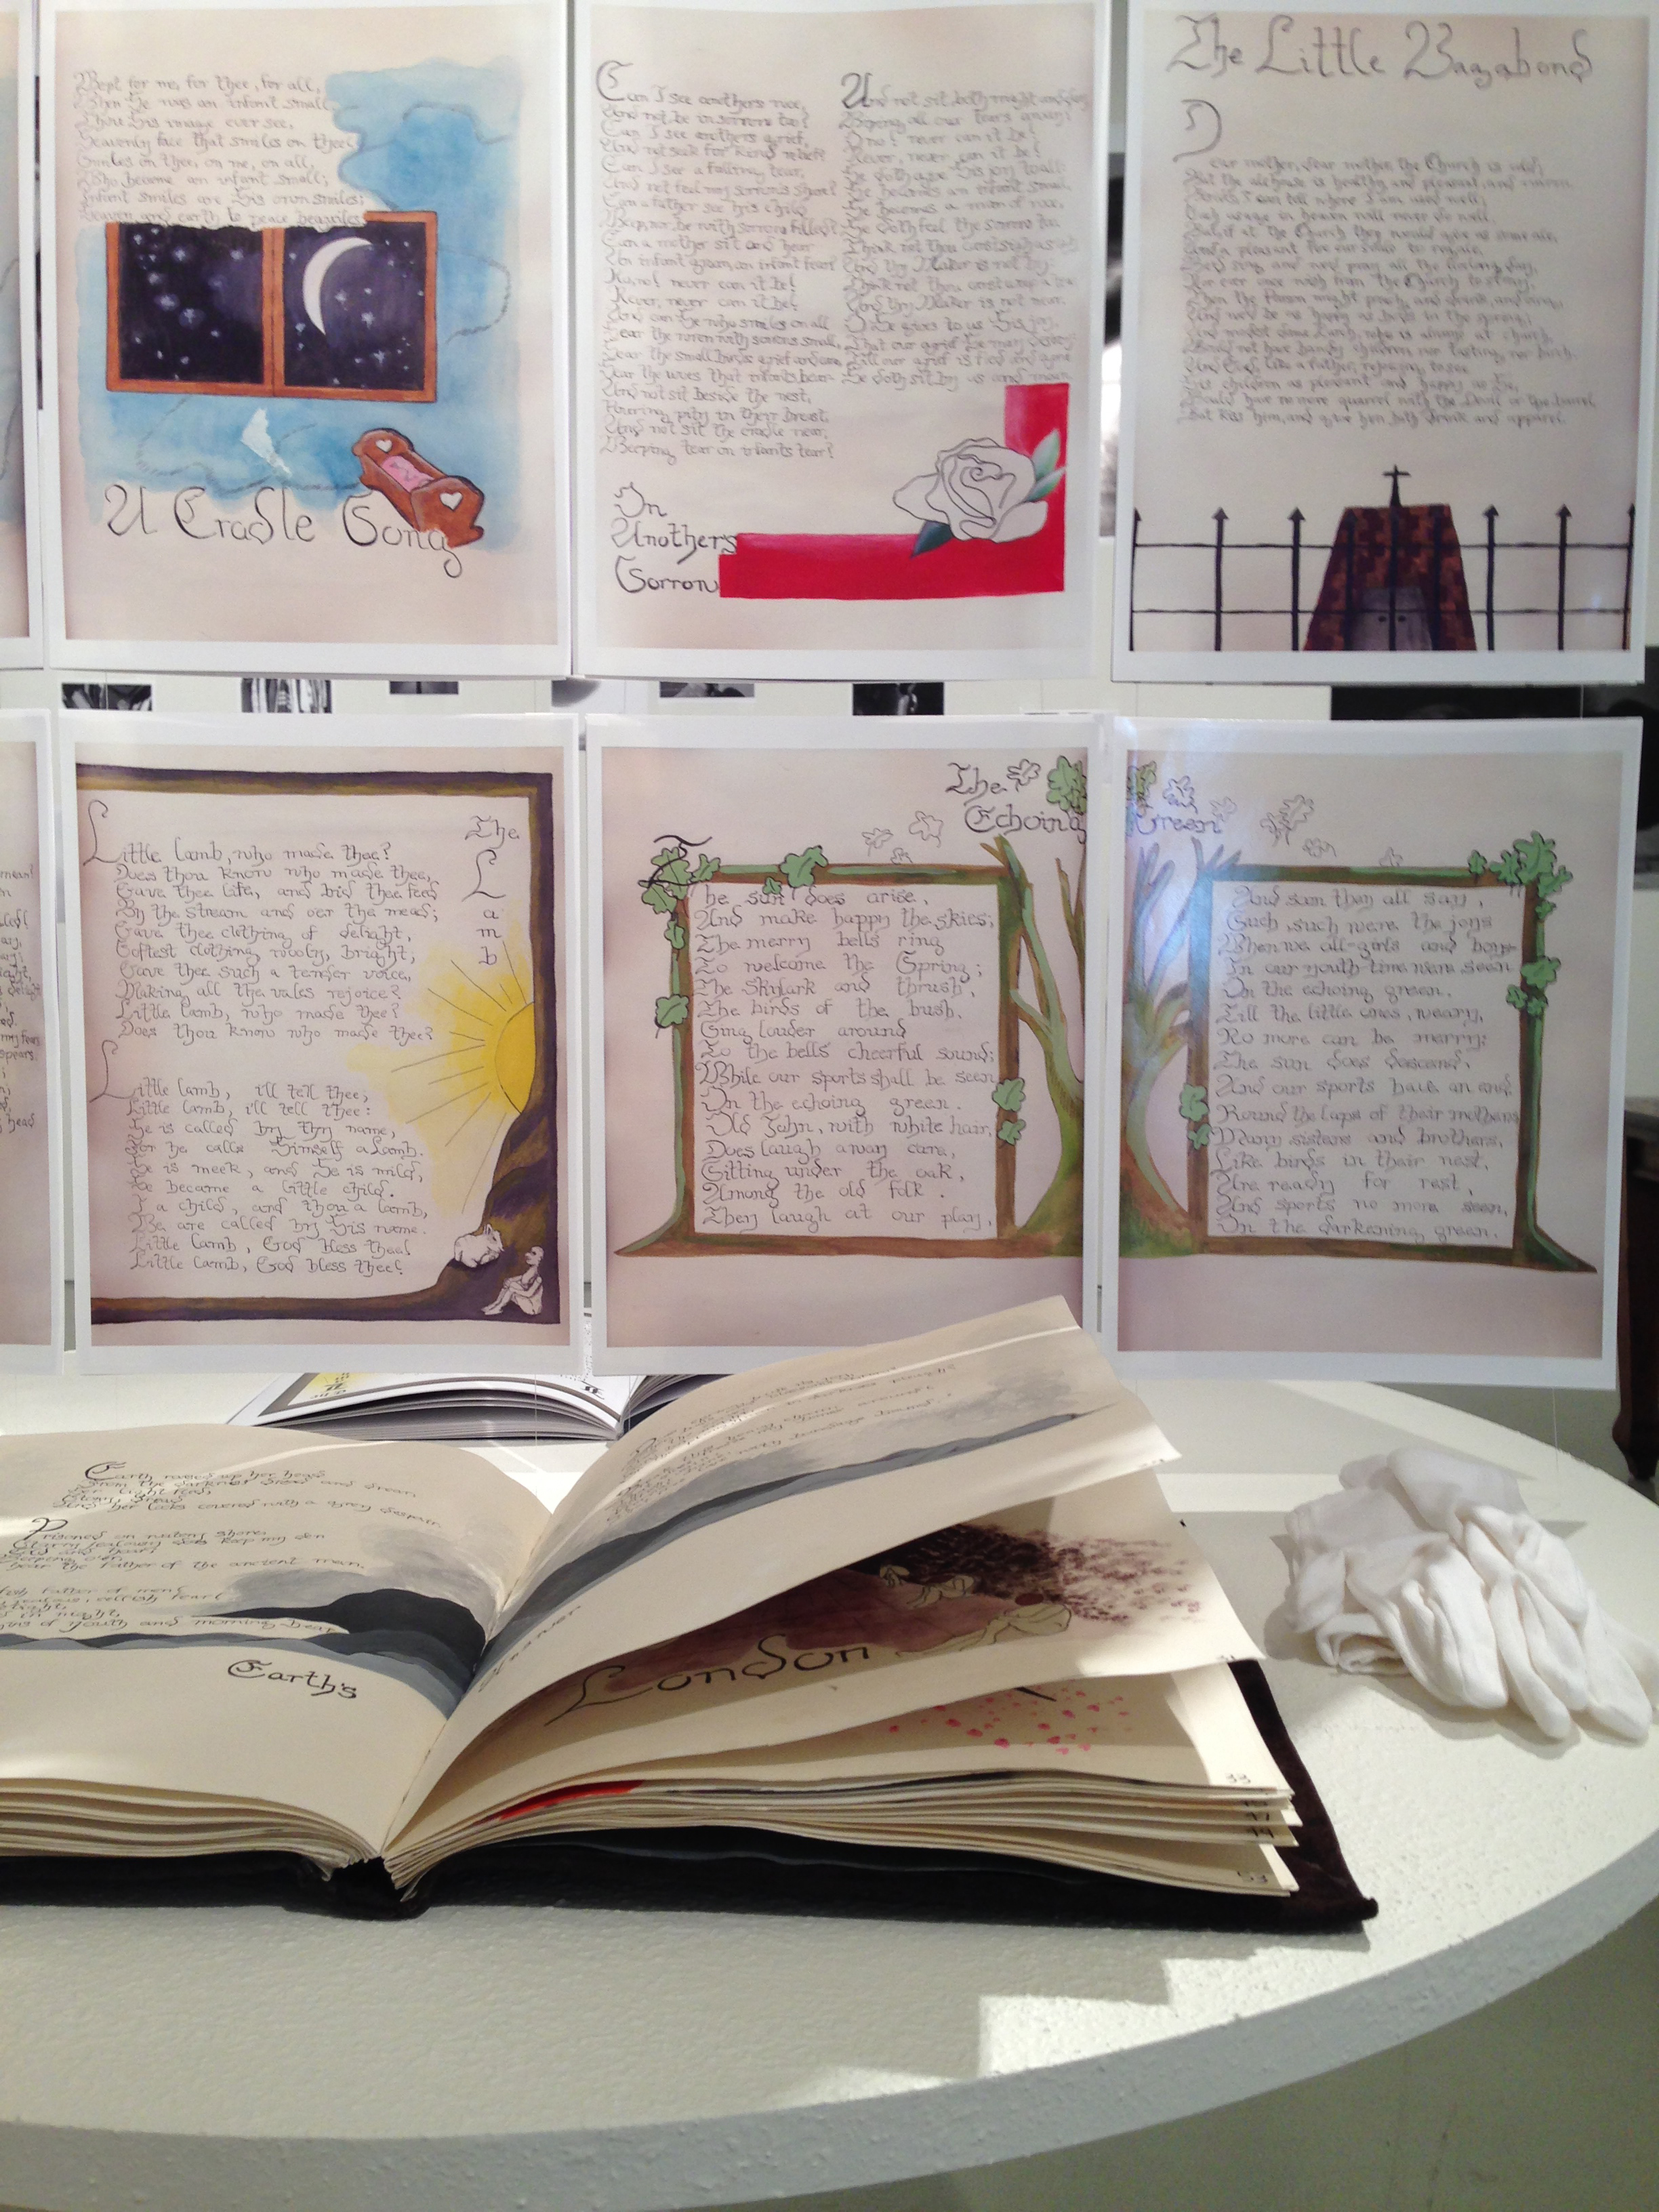 Wept for me, for thee, for all,
When He was an infant small.
Thou His image ever see,
Heavenly face that smiles on thee!
Smiles on thee, on me, on all,
Who became an infant small;
Infant smiles are His own smiles;
Heaven and earth to peace beguiles.
A Cradle Song
Can I see anothers woe,
And not be in sorrow too?
Can I see anothers grief,
And not seek for kind relief?
Can I see a falling tear,
And not feel my sorrows share?
Can a father see his child
Weep, nor be with sorrow filled?
Can a mother sit and hear
An infant groan, an infant fear?
No, no! never can it be!
Never, never can it be!
And can He who smiles on all
Hear the wren with sorrows small,
Hear the small birds grief and care,
Hear the woes that infants bear
And not sit beside the nest,
Pouring pity in their breast,
And not sit the cradle near,
Weeping tear on infants tear?
And not sit both night and day
Wiping all our tears away?
O no! never can it be!
Never, never can it be!
He doth give His joy to all:
He becomes an infant small,
He becomes a man of woe,
He doth feel the sorrow too.
Think not thou canst sigh a
And thy Maker is not by:
Think not thou canst weep a tear
And thy Maker is not near.
O He gives to us His joy,
That our grief He may destroy:
Till our grief is fled and gone
He doth sit by us and moan.
On
Anothers
Sorrow
The Little Vagabond
Dear mother, dear mother, the Church is cold;
But the alehouse is healthy, and pleasant, and warm.
Besides, I can tell where I am used well;
Such usage in heaven will never do well.
But, if at the Church they would give us some ale,
And a pleasant fire our souls to regale,
We'd sing and we'd pray all the livelong day,
Nor ever once wish from the Church to stray.
Then the Parson might preach, and drink, and sing,
And we'd be as happy as birds in the spring;
And modest Dame Lurch, who is always at church,
Would not have bandy children, nor fasting, nor birch.
And God, like a father, rejoicing to see
His children as pleasant and happy as He,
Would have no more quarrel with the Devil or the barrel,
But kiss him, and give him both drink and apparel.
The
Lamb
Little lamb, who made thee?
Does thou know who made thee,
Gave thee life, and bid thee feed
By the stream and oer the mead;
Gave thee clothing of delight,
Softest clothing, wooly, bright;
Gave thee such a tender voice,
Making all the vales rejoice?
Little lamb, who made thee?
Does thou know who made thee?
Little lamb, i'll tell thee;
Little lamb, i'll tell thee:
He is called by thy name,
For he calls Himself a Lamb.
He is meek, and He is mild,
He became a little child.
I a child, and thou a lamb,
We are called by His name.
Little lamb, God bless thee!
Little lamb, God bless thee!
The
Echoing
Green
The sun does arise,
And make happy the skies;
The merry bells ring
To welcome the Spring;
The skylark and thrush,
The birds of the bush,
Sing louder around
To the bells cheerful sound;
While our sports shall be seen
On the echoing green.
Old John, with white hair,
Does laugh away care,
Sitting under the oak,
Among the old folk.
They laugh at our play,
And soon they all say,
Such, such were the joys
When we all-girls and boys-
In our youth-time were seen
On the echoing green.
Till the little ones, weary,
No more can be merry:
The sun does descend,
And our sports have an end.
Round the laps of their mothers
Many sisters and brothers,
Like birds in their nest,
Are ready for rest,
And sports no more seen,
On the darkening green.
Earth raised up her head
From the darkness dread and drear,
Her light fled,
Stony, dread,
And her locks covered with a grey despair.
Prisoned on watery shore,
Starry jealousy does keep my den
Cold and hoar;
Weeping oer,
hear the father of the ancient men.
father of men!
selfish fear!
night,
of youth and morning bear
Earth's
Answer
London
33
53